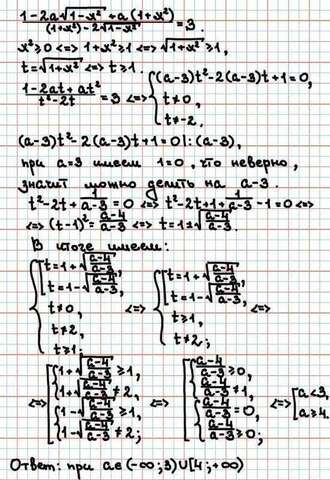 (1-2a√(1-x²)+a(1+x²))/((1+x²)-2√(1-x²)) = 3.
x²≥0 <=> 1+x²≥1 <=> √(1+x²)≥1,
t=√(1+x²) <=> t≥1.
(1-2at+at²)/(t²-2t) = 3 <=> { (a-3)t²-2(a-3)t+1=0, t≠0, t≠-2.
(a-3)t²-2(a-3)t+1=0 |:(a-3),
при a=3 имеем 1=0, что неверно,
значит можно делить на a-3.
t²-2t+1/(a-3)=0 <=> t²-2t+1+1/(a-3)-1=0 <=>
<=> (t-1)²=(a-4)/(a-3) <=> t=1±√((a-4)/(a-3)).
В итоге имеем:
{ [ t=1+√((a-4)/(a-3)), t=1-√((a-4)/(a-3)), t≠0, t≠2, t≥1; <=> { [ t=1+√((a-4)/(a-3)), t=1-√((a-4)/(a-3)), t≥1, t≠2; <=>
<=> [ { 1+√((a-4)/(a-3))≥1, 1+√((a-4)/(a-3))≠2, { 1-√((a-4)/(a-3))≥1, 1-√((a-4)/(a-3))≠2; <=> [ { (a-4)/(a-3)≥0, (a-4)/(a-3)≠1, { (a-4)/(a-3)=0, (a-4)/(a-3)≥0; <=> [ a<3, a≥4.
Ответ: при a∈(-∞;3)∪[4;+∞)